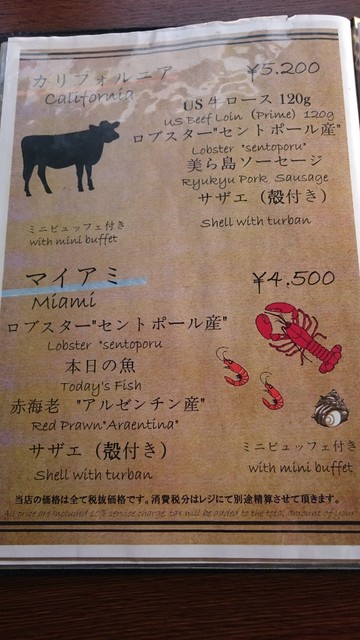 カリフォルニア ¥5.200
California
US 牛ロース 120g
US Beef Loin (Prime) 120g
ロブスター"セントポール産"
Lobster "sentoporu"
美ら島ソーセージ
Ryukyu Pork Sausage
サザエ（殻付き）
Shell with turban
ミニビュッフェ付き
with mini buffet
マイアミ ¥4.500
Miami
ロブスター"セントポール産"
Lobster "sentoporu
本日の魚
Today's Fish
赤海老 "アルゼンチン産"
Red Prawn"Araentina"
サザエ（殻付き）
Shell with turban
ミニビュッフェ付き
with mini buffet
当店の価格は全て税抜価格です。消費税分はレジにて別途精算させて頂きます。
All price are included 10% service charge. tax will be added to the total amount of your